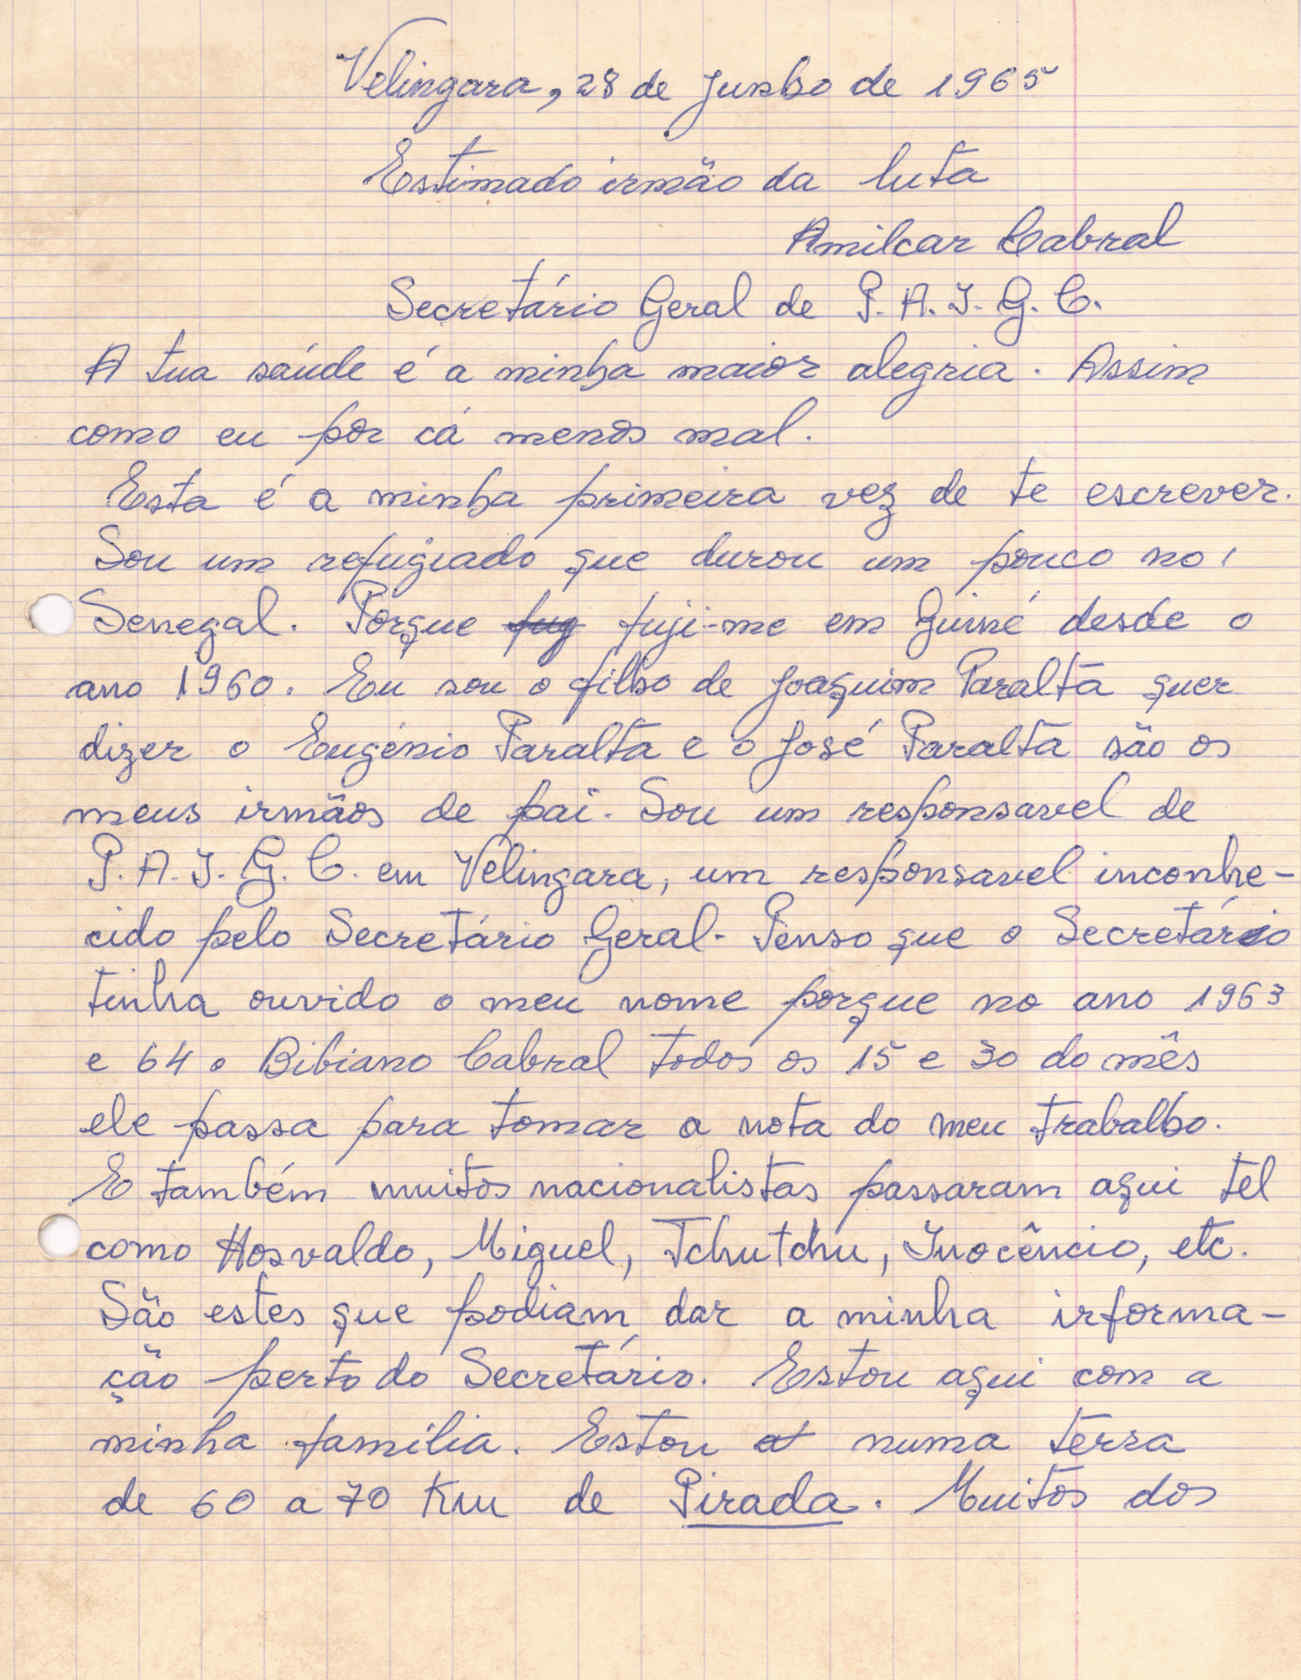 Velingara, 28 de Junho de 1965
Estimado irmão da luta
Amilcar Cabral
Secretário Geral de P. A. I. G. C.
A tua saúde é a minha maior alegria. Assim
como eu por cá menos mal.
Esta é a minha primeira vez de te escrever.
Sou um refugiado que durou um pouco no
Senegal. Porque fug fuji-me em Guiné desde o
ano 1960. Eu sou o filho de Joaquim Paralta quer
dizer o Eugénio Paralta e o José Paralta são os
meus irmãos de pai. Sou um responsavel de
P. A. I. G. C. em Velingara, um responsavel inconhe-
cido pelo Secretário Geral. Penso que o Secretário
tinha ouvido o meu nome porque no ano 1963
e 64 o Bibiano Cabral todos os 15 e 30 do mês
ele passa para tomar a nota do meu trabalho.
E também muitos nacionalistas passaram aqui tel
como Hosvaldo, Miguel, Tchutchu, Inocêncio, etc.
São estes que podiam dar a minha informa-
ção perto do Secretário. Estou aqui com a
minha família. Estou at numa terra
de 60 a 70 Km de Pirada. Muitos dos